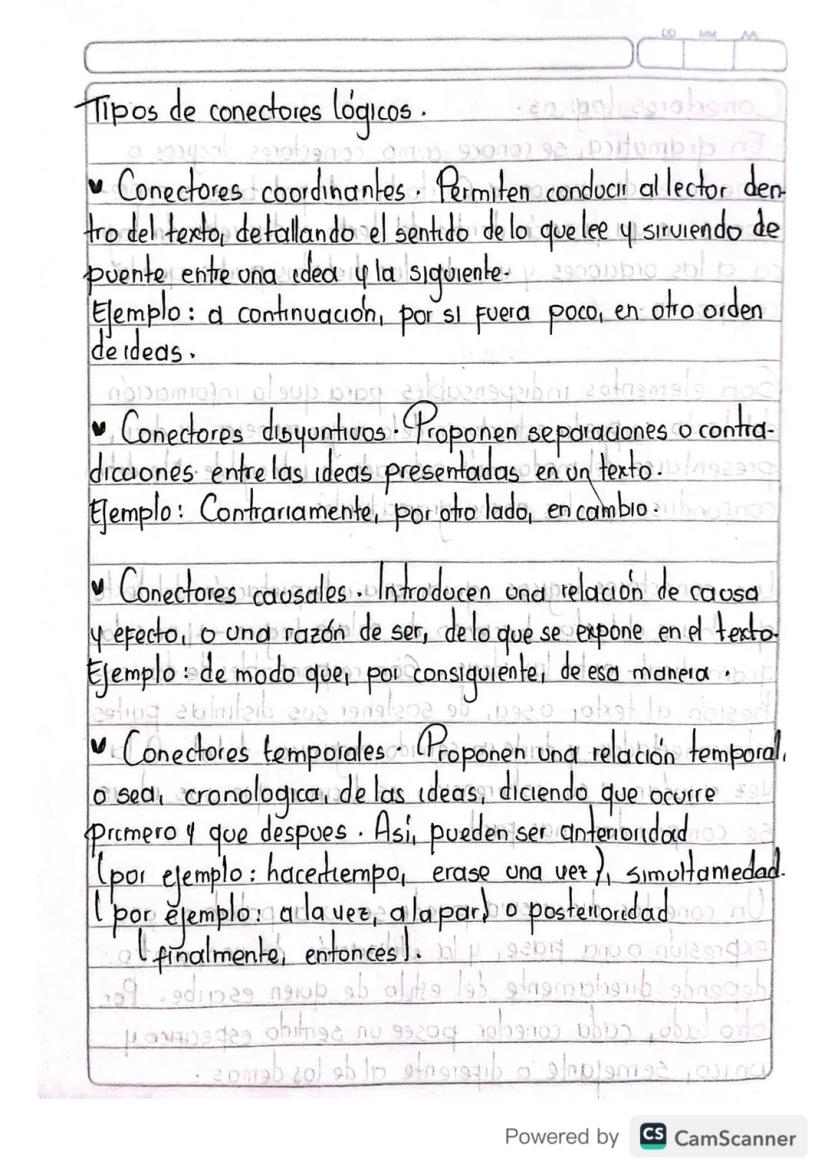 DD MM AA
Tipos de conectores lógicos.
Conectores coordinantes. Permiten conducir al lector den-
tro del texto, detallando el sentido de lo que lee y sirviendo de
puente entre una idea y la siguiente.
Ejemplo: a continuación, por si fuera poco, en otro orden
de ideas.
Conectores disyuntivos. Proponen separaciones o contra-
dicciones entre las ideas presentadas en un texto.
Ejemplo: Contrariamente, por otro lado, en cambio.
Conectores causales. Introducen una relación de causa
y efecto, o una razón de ser, de lo que se expone en el texto.
Ejemplo: de modo que, por consiguiente, de esa manera.
Conectores temporales. Proponen una relación temporal,
o sea, cronologica, de las ideas, diciendo que ocurre
primero y que despues. Así, pueden ser anterioridad
(por ejemplo: hace tiempo, erase una vez), simultamedad.
(por ejemplo: a la vez, a la par) o posterioridad
(finalmente, entonces).
Powered by CS CamScanner